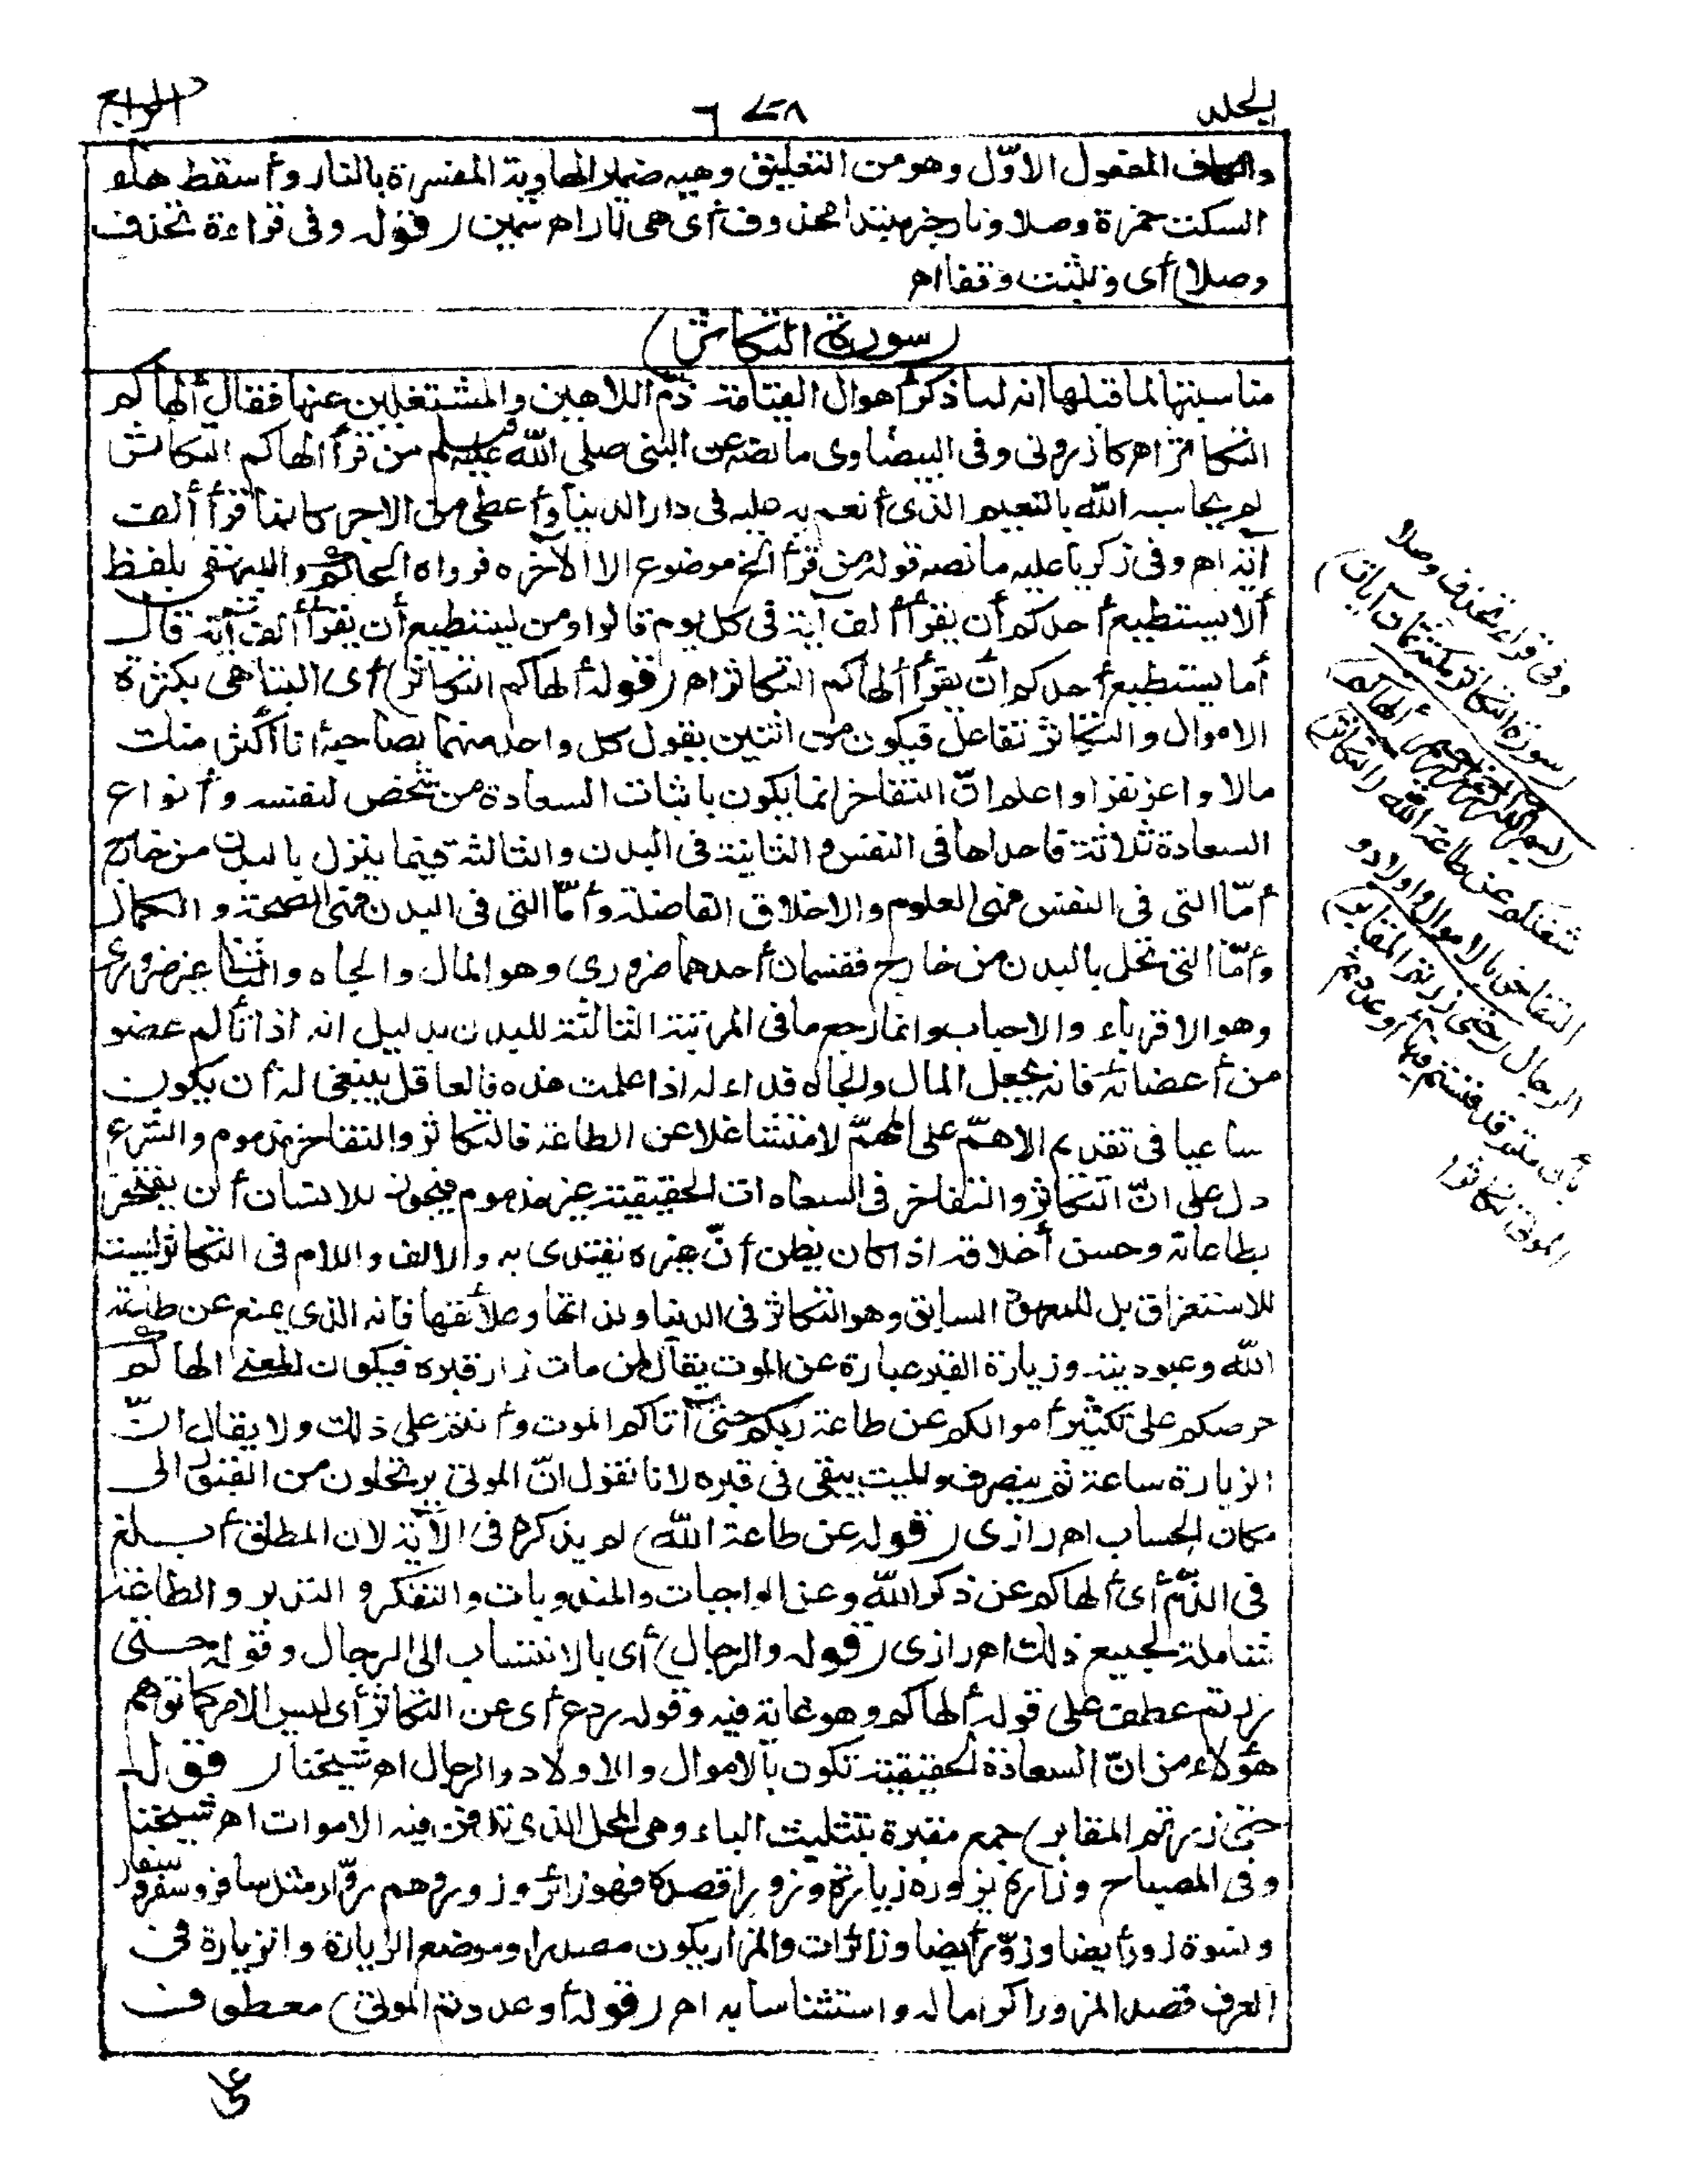 الجلد
الرابع
والكاف المفعول الاوّل وهو من التعليق وهيه ضمير الهاوية المفسرة بالنار وأسقط هاء
السكت حمزة وصلا ونار خبر مبتدا محذوف أى هى نار اهـ سمين (قوله وفى قراءة تحذف
وصلا) أى وتثبت وقفا اهـ
(سورة التكاثر)
مناسبتها لما قبلها انه لما ذكر أهوال القيامة ذمّ اللاهين والمشتغلين عنها فقال ألهاكم
التكاثر اهـ كازرونى وفى البيضاوى ما نصه عن النبى صلى الله عليه وسلم من قرأ ألهاكم التكاثر
لم يحاسبه الله بالنعيم الذى أنعم به عليه فى دار الدنيا وأعطى من الاجر كانما قرأ ألف
آية اهـ وفى زكريا عليه ما نصه قوله من قرأ الخ موضوع الا الآخره فرواه الحاكم والبيهقى بلفظ
ألا يستطيع أحدكم أن يقرأ ألف آية فى كل يوم قالوا ومن يستطيع أن يقرأ ألف آية قال
أما يستطيع أحدكم أن يقرأ ألهاكم التكاثر اهـ (قوله ألهاكم التكاثر) أى التباهى بكثرة
الاموال والتكاثر تفاعل فيكون من اثنين يقول كل واحد منهما لصاحبه أنا أكثر منك
مالا وأعز نفرا واعلم انّ التفاخر انما يكون باثبات السعادة من شخص لنفسه وأنواع
السعادة ثلاثة فاحداها فى النفس والثانية فى البدن والثالثة فيما ينزل بالبدن من خارج
أمّا التى فى النفس فهى العلوم والاخلاق الفاضلة وأمّا التى فى البدن فهى الصحة والجمال
وأمّا التى تحل بالبدن من خارج فقسمان أحدهما ضرورى وهو المال والجاه والثانى غير ضرورى
وهو الاقرباء والاحباب وانما رجع ما فى المرتبة الثالثة للبدن بدليل انه اذا تألم عضو
من أعضائه فانه يجعل المال والجاه فداء له اذا علمت هذه فالعاقل ينبغى له أن يكون
ساعيا فى تقديم الاهمّ على المهمّ لا متشاغلا عن الطاعة فالتكاثر والتفاخر مذموم والشرع
دل على انّ التكاثر والتفاخر فى السعادات الحقيقية غير مذموم فيجوز للانسان أن يفتخر
بطاعاته وحسن أخلاقه اذا كان يظن أنّ غيره يقتدى به والالف واللام فى التكاثر ليست
للاستغراق بل للمعهود السابق وهو التكاثر فى الدنيا ولذاتها وعلائقها فانه الذى يمنع عن طاعة
الله وعبوديته وزيارة القبر عبارة عن الموت يقال لمن مات زار قبره فيكون المعنى ألهاكم
حرصكم على تكثير أموالكم عن طاعة ربكم حتى أتاكم الموت وأنتم على ذلك ولا يقال انّ
الزيارة ساعة ثم ينصرف والميت يبقى فى قبره لانا نقول انّ الموتى يرتحلون من القبور الى
مكان الحساب اهـ رازى (قوله عن طاعة الله) لم يذكره فى الآية لان المطلق أبلغ
فى الذّم أى ألهاكم عن ذكر الله وعن الواجبات والمندوبات والتفكر والتدبر والطاعة
شاملة لجميع ذلك اهـ رازى (قوله والرجال) أى بالانتساب الى الرجال وقوله حتى
زرتم عطف على قوله ألهاكم وهو غاية فيه وقوله ردع أى عن التكاثر أى ليس الامر كما توهم
هؤلاء من انّ السعادة الحقيقية تكون بالاموال والاولاد والرجال اهـ شيخنا (قوله
حتى زرتم المقابر) جمع مقبرة بتثليث الباء وهى المحل الذى تدفن فيه الاموات اهـ شيخنا
وفى المصباح وزاره يزوره زيارة وزورا قصده فهو زائر وزور وهم زوّار مثل سافر وسفر وسفار
ونسوة زور أيضا وزوّر أيضا وزائرات والمزار يكون مصدرا وموضع الزيارة والزيارة فى
العرف قصد المزور اكراما له واستئناسا به اهـ (قوله أو عددتم الموتى) معطوف
على
وفى قراءة تحذف وصلا
(سورة التكاثر مكية ثمان آيات)
بسم الله الرحمن الرحيم ألهاكم
شغلكم عن طاعة الله (التكاثر)
التفاخر بالاموال والاولاد و
الرجال (حتى زرتم المقابر)
بأن متم فدفنتم فيها أو عددتم
الموتى تكاثرا